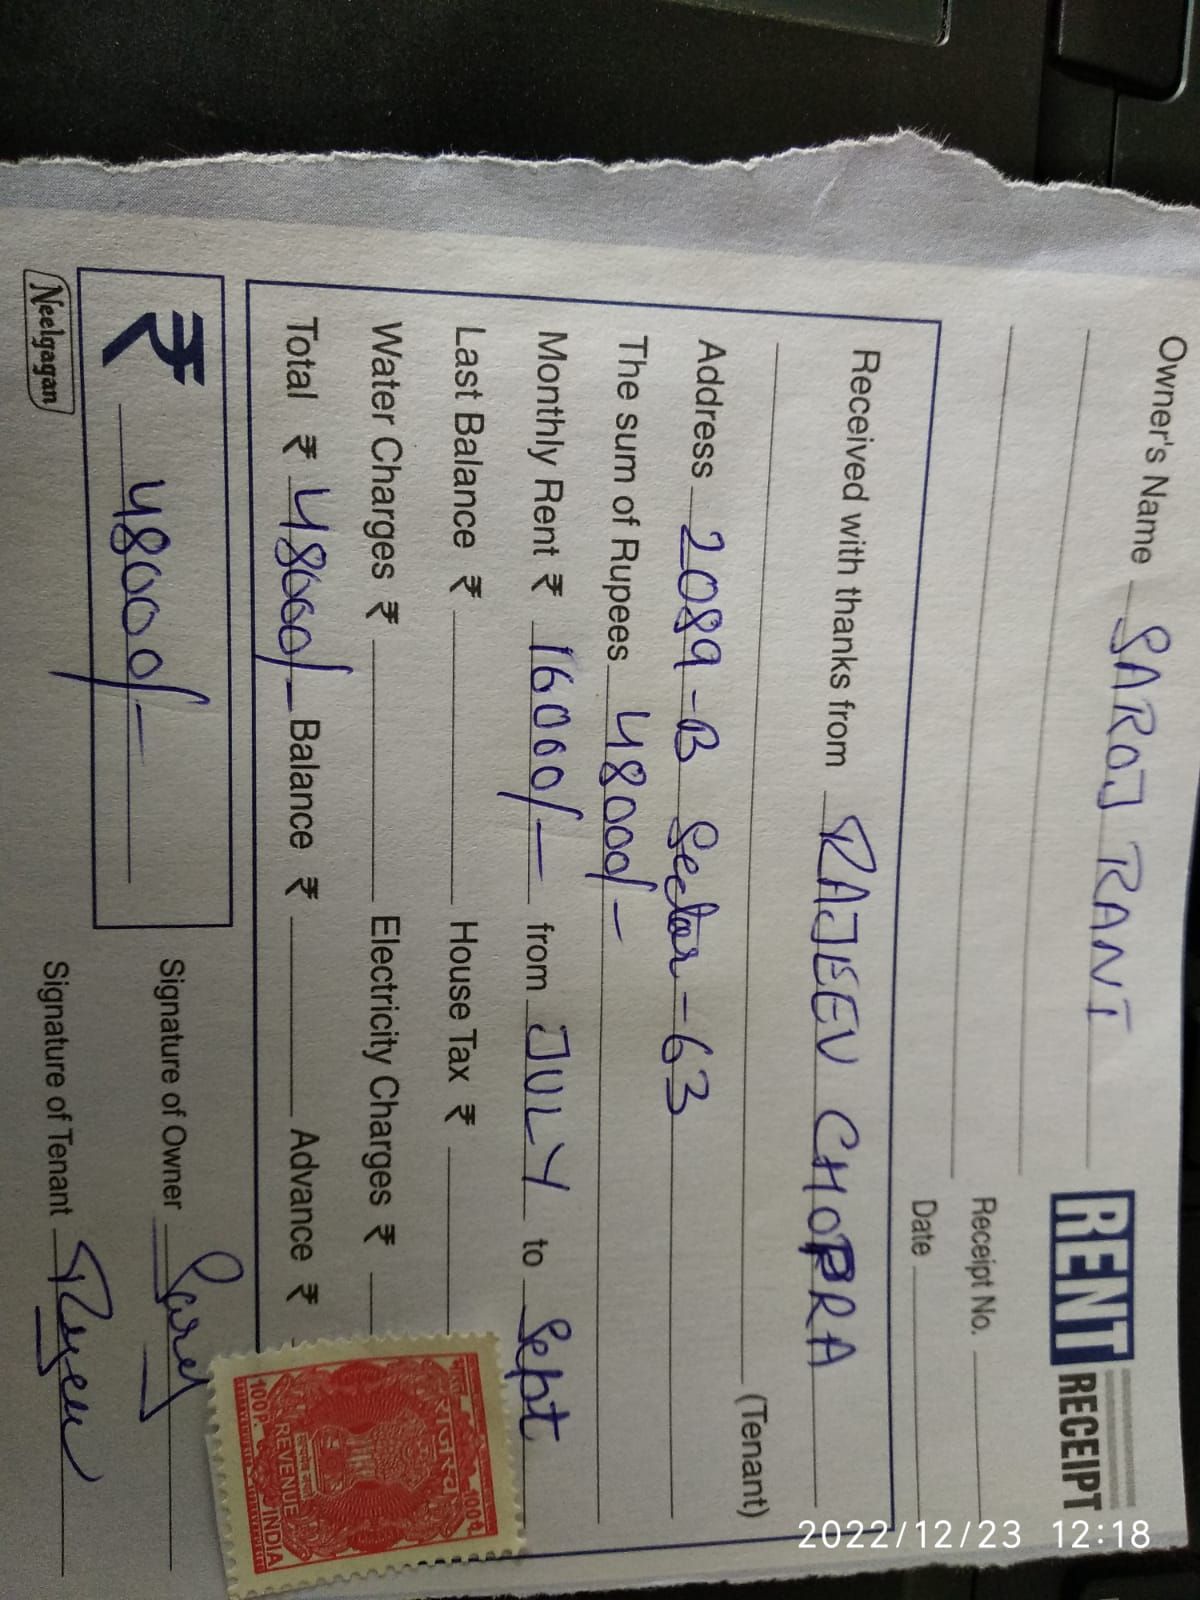 Owner's Name SAROJ RANI
RENT RECEIPT
Receipt No.
Date
Received with thanks from RAJEEV CHOPRA
(Tenant)
Address 2089-B Sector-63
The sum of Rupees 48000/-
Monthly Rent ₹ 16000/- from JULY to Sept
Last Balance ₹ House Tax ₹
Water Charges ₹ Electricity Charges ₹
Total ₹ 48000/- Balance ₹ Advance ₹
₹ 48000/-
Signature of Owner Saroj
Signature of Tenant Rajeev
Neelgagan
राजस्व
100P. REVENUE INDIA
2022/12/23 12:18